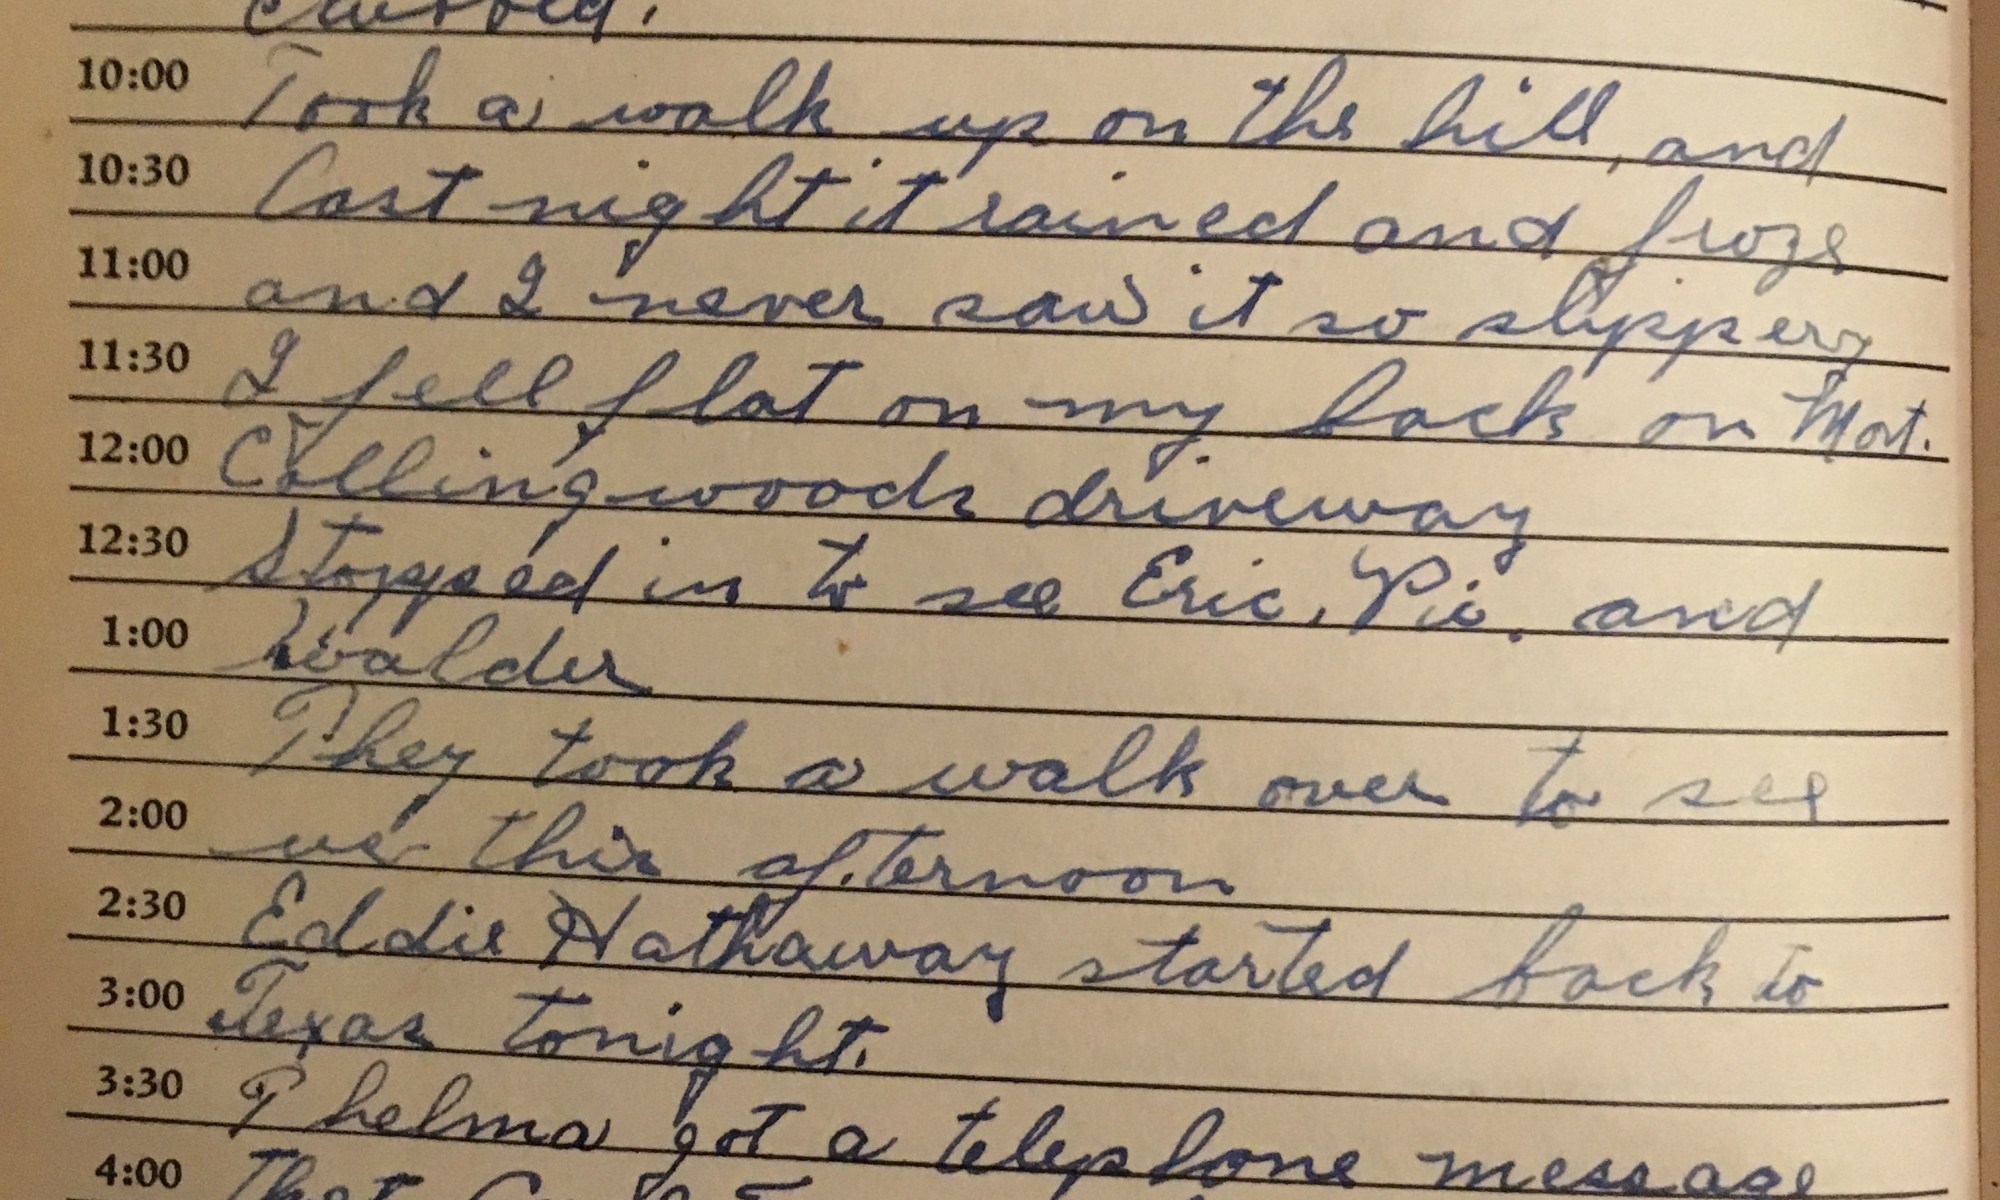 10:00 Took a walk up on the hill, and
10:30 Last night it rained and froze
11:00 and I never saw it so slippery
11:30 I fell flat on my back on Mort.
12:00 Collingwoods driveway
12:30 Stopped in to see Eric, Pio. and
1:00 Walder
1:30 They took a walk over to see
2:00 us this afternoon
2:30 Eddie Hathaway started back to
3:00 Texas tonight.
3:30 Thelma got a telephone message
4:00 that